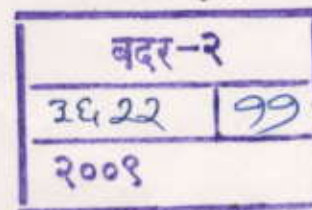 बदर-२
३६२२ ११
२००९